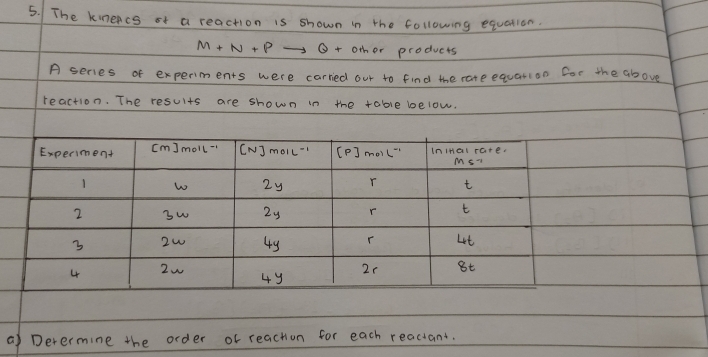 5. The kinetics of a reaction is shown in the following equation.
M + N + P → Q + other products
A series of experiments were carried out to find the rate equation for the above
reaction. The results are shown in the table below.
Experiment [M] mol L⁻¹ [N] mol L⁻¹ [P] mol L⁻¹ Initial rate. Ms⁻¹
1 w 2y r t
2 3w 2y r t
3 2w 4y r 4t
4 2w 4y 2r 8t
a) Determine the order of reaction for each reactant.